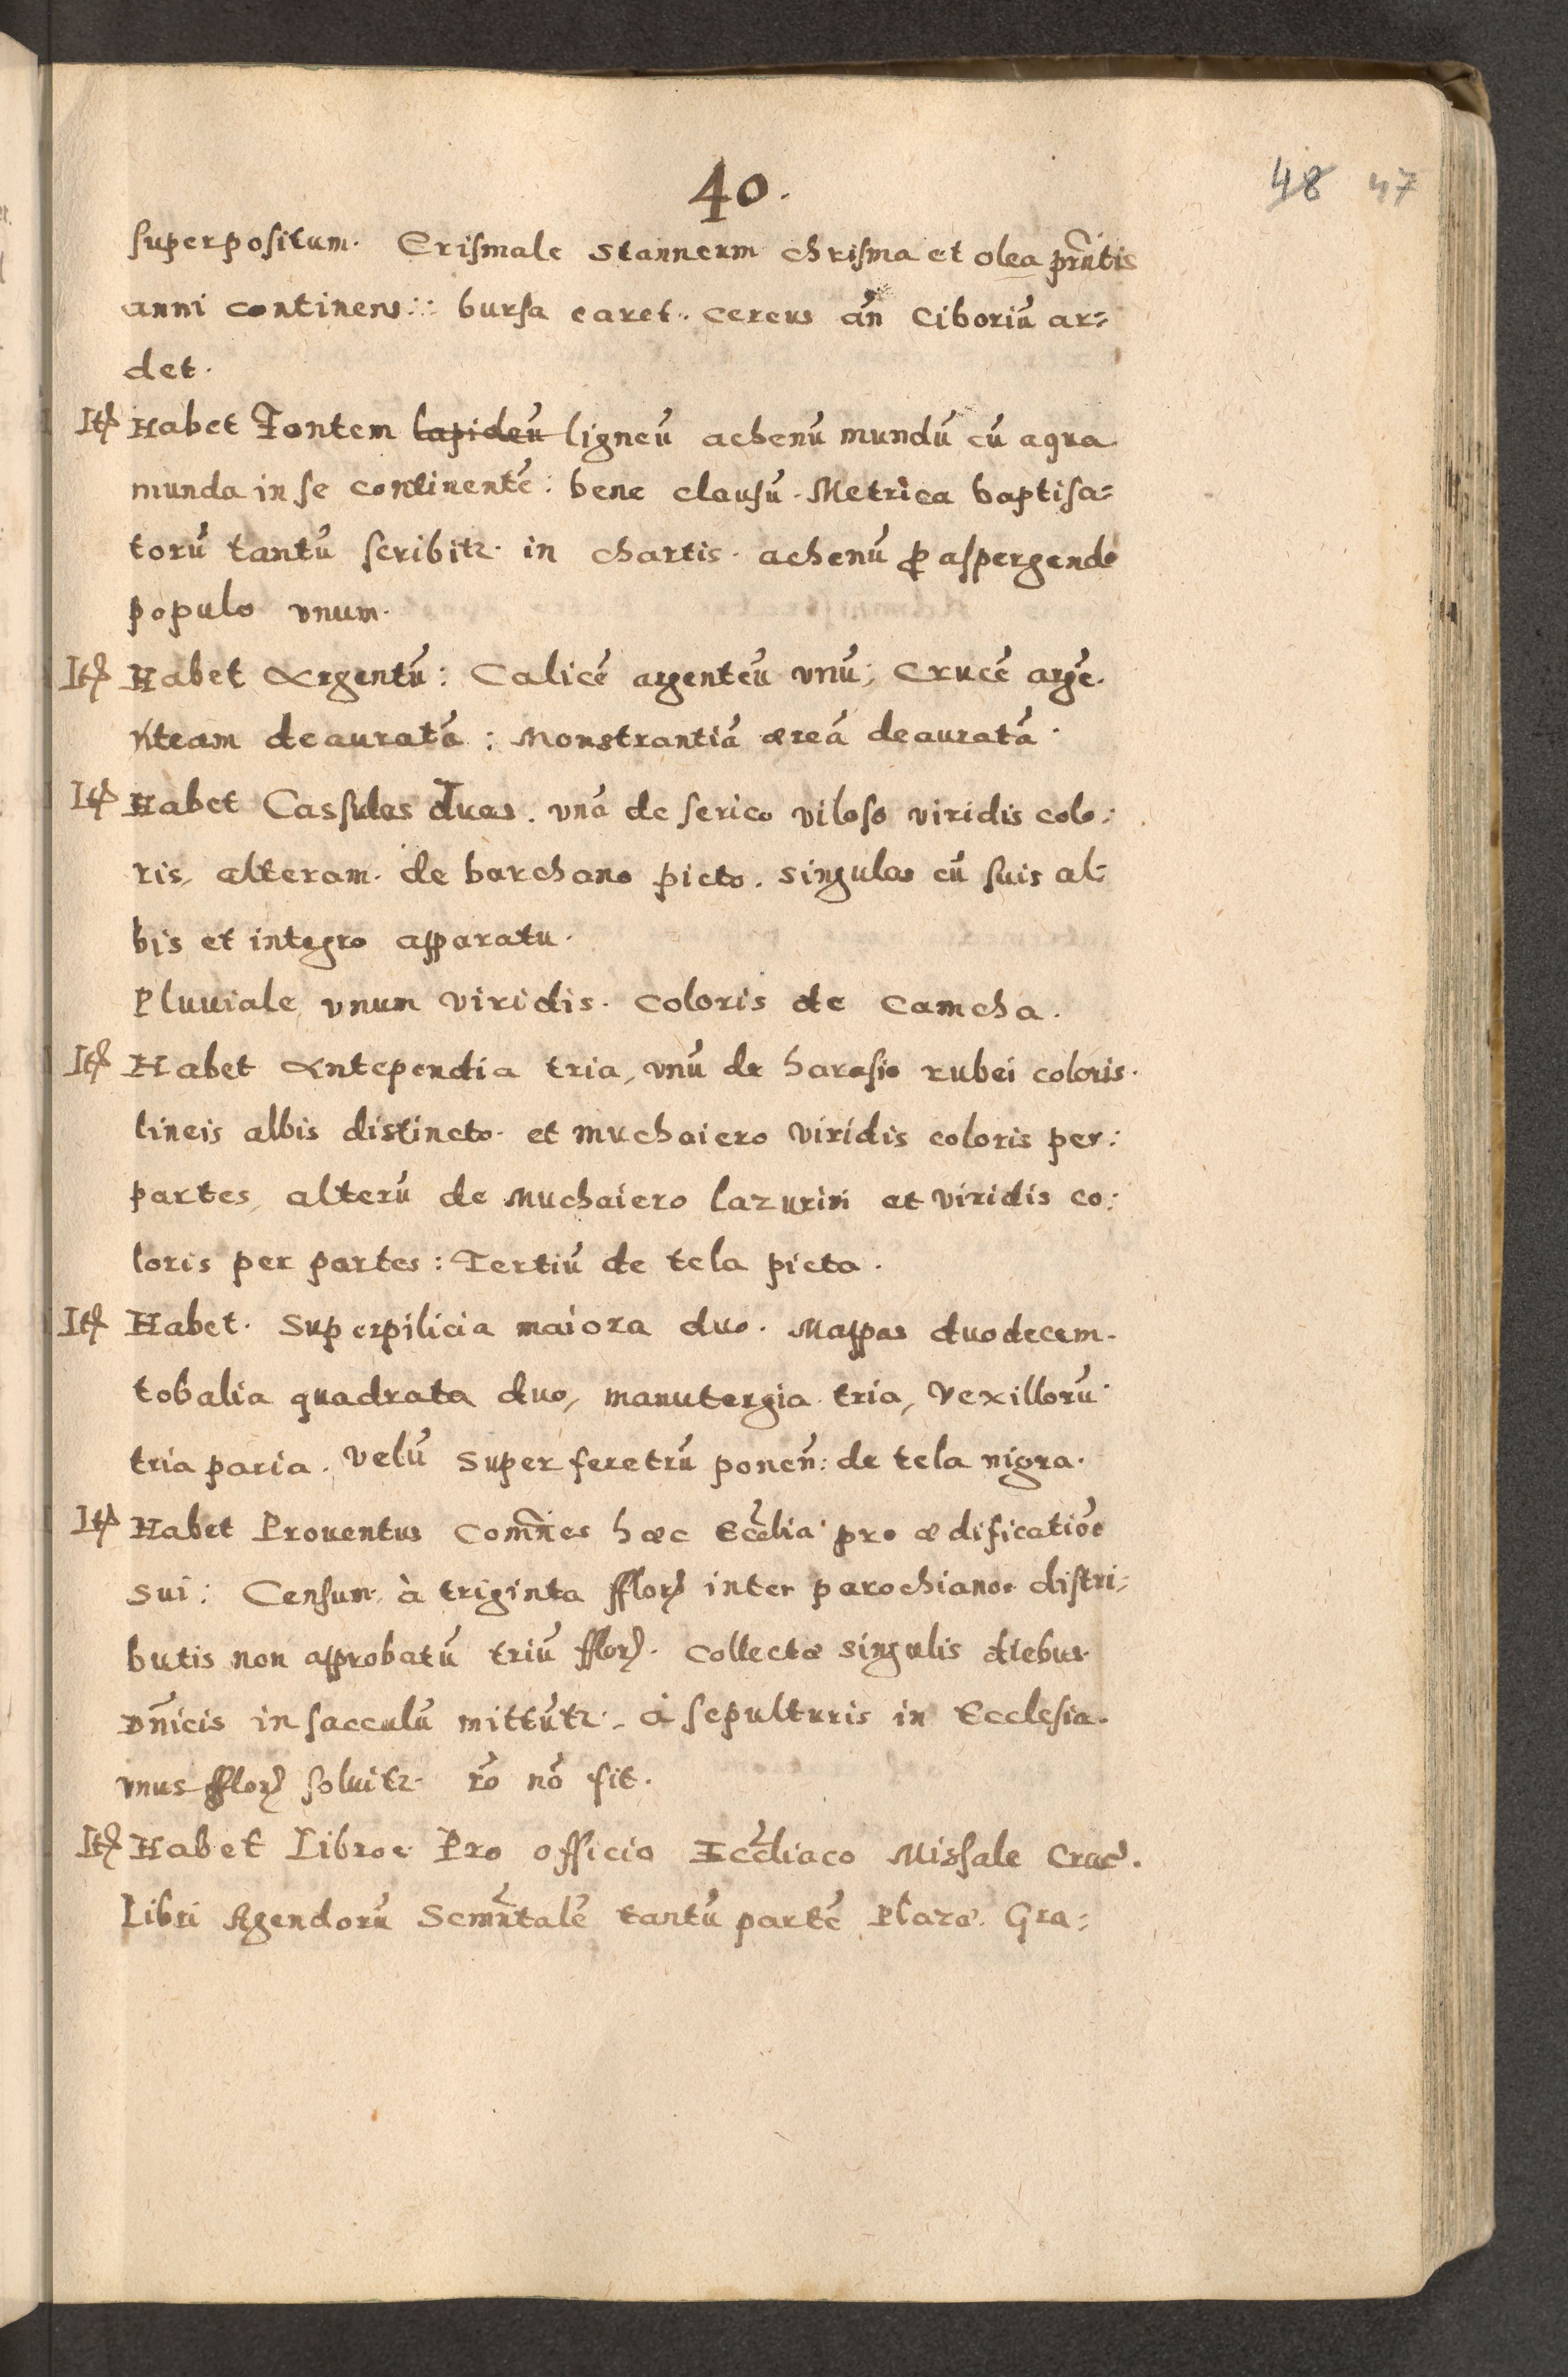 40.
48 47
superpositum. Crismale stanneum chrisma et olea prñtis
anni continens: bursa caret. cereus añ Ciboriũ ar=
det.
Itẽ Habet Fontem lapideũ ligneũ achenũ mundũ cũ aqua
munda in se continentẽ: bene clausũ. Metrica baptisa=
torũ tantũ scribitr. in chartis. achenũ ꝓ aspergendo
populo vnum.
Itẽ Habet Argentũ: Calicẽ argenteũ vnũ; Crucẽargẽ.
nteam deauratã: Monstrantiã æreã deauratã.
Itẽ Habet Cassulas duas. vnã de serico viloso viridis colo:
ris, alteram. de barchano picto. singulas cũ suis al=
bis et integro apparatu.
Pluuiale vnum viridis. coloris de Camcha.
Itẽ Habet Antependia tria, vnũ de harasio rubei coloris.
lineis albis distincto. et muchaiero viridis coloris per:
partes, alterũ de Muchaiero lazurini et viridis co:
loris per partes: Tertiũ de tela picta.
Itẽ Habet. Superpilicia maiora duo. Mappas duodecem.
tobalia quadrata duo, manutergia tria, Vexillorũ
tria paria. velũ super feretrũ ponen̄: de tela nigra.
Itẽ Habet Prouentus Com̃nes hæc Ecc̃lia pro ædificatiõe
sui: Censum à triginta fflor inter parochianos distri=
butis non approbatũ triũ fflor. Collectæ singulis diebus
Dñicis in sacculũ mittũtr. à sepulturis in Ecclesia.
vnus fflor soluitr. rõ nõ fit.
Itẽ Habet Libros Pro officio Ecc̃liaco Missale Crac̃.
Libri Agendorũ Scm̃ntalẽ tantũ partẽ Gra=